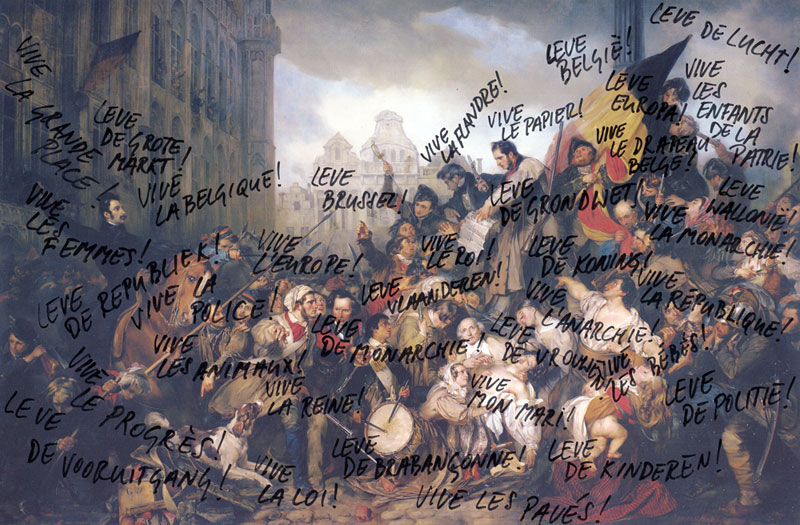 VIVE
LA GRANDE
PLACE!
LEVE
DE GROTE
MARKT!
VIVE
LA BELGIQUE!
LEVE
BRUSSEL!
VIVE
LA FLANDRE!
VIVE
LE PAPIER!
LEVE
BELGIË!
LEVE DE LUCHT!
LEVE
EUROPA!
VIVE
LES
ENFANTS
DE LA
PATRIE!
VIVE
LE DRAPEAU
BELGE!
VIVE
LES
FEMMES!
LEVE
DE REPUBLIEK!
VIVE
L'EUROPE!
VIVE
LE ROI!
LEVE
DE GRONDWET!
LEVE
WALLONIË!
VIVE
LA MONARCHIE!
LEVE
DE KONING!
VIVE LA
POLICE!
LEVE
VLAANDEREN!
VIVE
L'ANARCHIE!
VIVE
LA RÉPUBLIQUE!
VIVE
LES ANIMAUX!
LEVE
DE MONARCHIE!
LEVE
DE VROUWEN!
VIVE
LES BÉBÉS!
VIVE
LE PROGRÈS!
VIVE
LA REINE!
VIVE
MON MARI!
LEVE
DE POLITIE!
LEVE
DE VOORUITGANG!
VIVE
LA LOI!
LEVE
DE BRABANÇONNE!
LEVE
DE KINDEREN!
VIVE LES
PAVÉS!